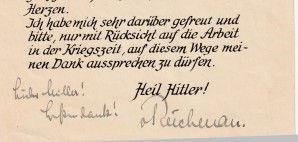 Herzen.
Ich habe mich sehr darüber gefreut und
bitte, nur mit Rücksicht auf die Arbeit
in der Kriegszeit, auf diesem Wege mei-
nen Dank aussprechen zu dürfen.
Heil Hitler!
Reichenau.